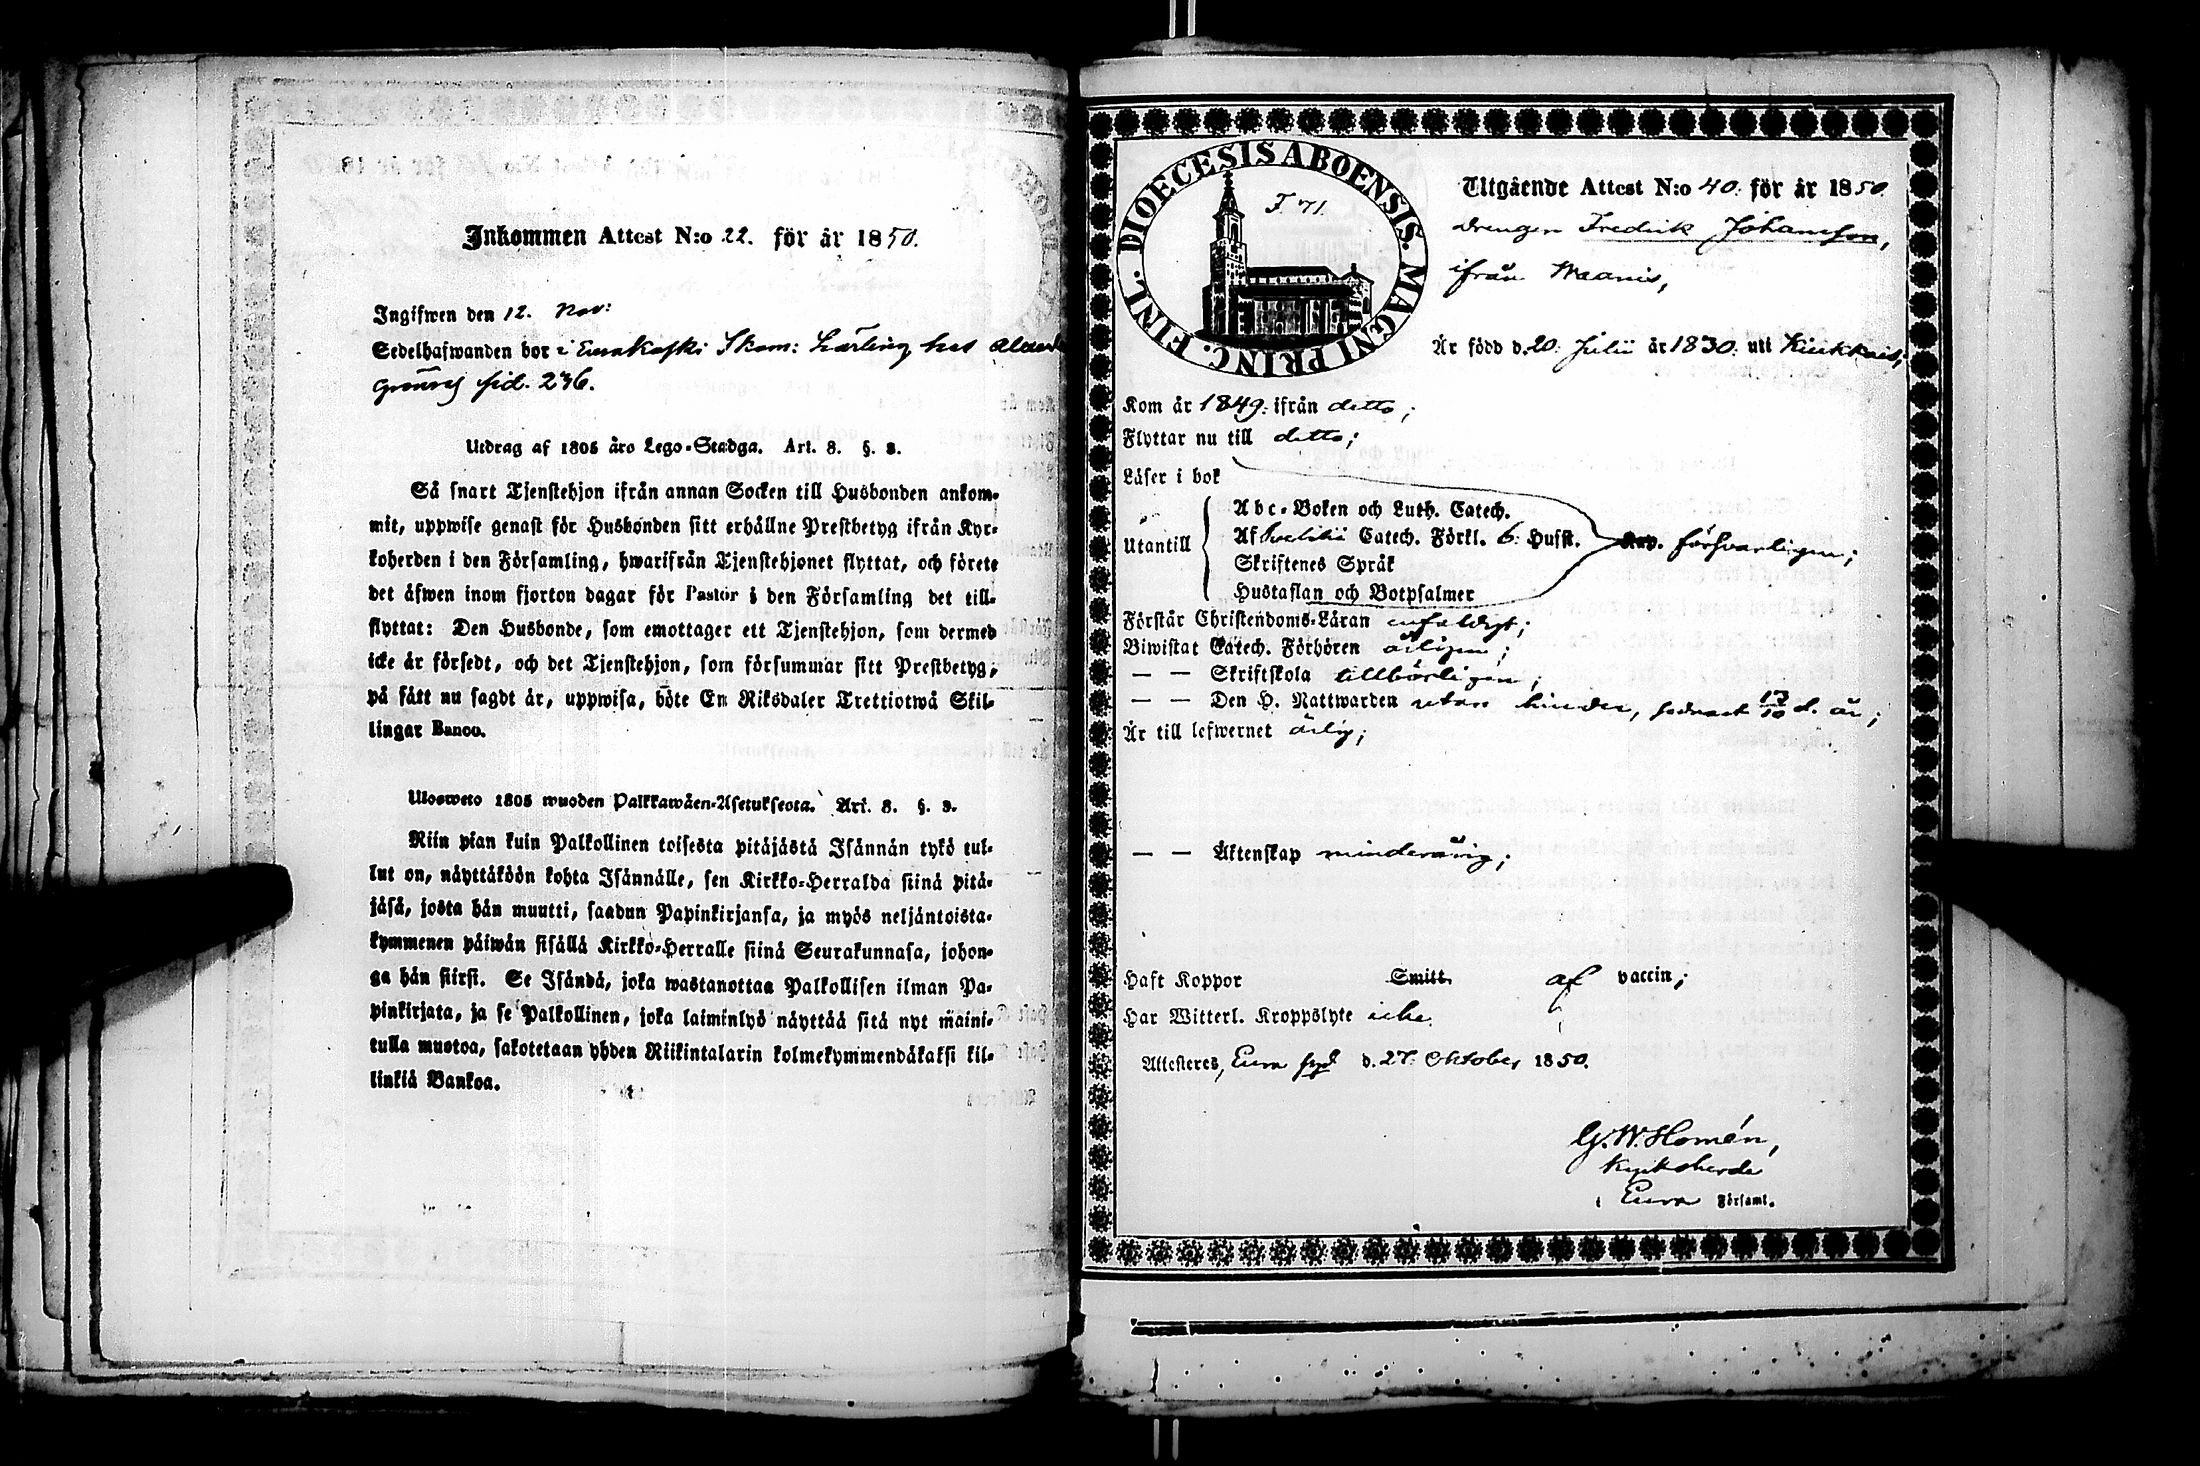 Inkommen Attest N:o 22. för år 1850.
Ingifwen den 12. Nov:
Sedelhafwanden bor i Eurakoski Skom: Lärling hos
sid. 236.
Utdrag af 1805 års Lego-Stadga. Art. 8. §. 3.
Så snart Tjenstehjon ifrån annan Socken till Husbonden ankom-
mit, uppwise genast för Husbonden sitt erhållne Prestbetyg ifrån Kyr-
koherden i den Församling, hwarifrån Tjenstehjonet flyttat, och förete
det äfwen inom fjorton dagar för Pastor i den Församling det till-
flyttat: Den Husbonde, som emottager ett Tjenstehjon, som dermed
icke är försedt, och det Tjenstehjon, som försummar sitt Prestbetyg,
på sått nu sagdt är, uppwisa, böte En Riksdaler Trettiotwå Skil-
lingar Banco.
Ulosweto 1805 wuoden Palkkawäen-Asetuksesta. Art. 8. §. 3.
Niin pian kuin Palkollinen toisesta pitäjästä Isännän tykö tul-
lut on, näyttäköön kohta Isännälle, sen Kirkko-Herralda siinä pitä-
jäsä, josta hän muutti, saadun Papinkirjansa, ja myös neljäntoista-
kymmenen päiwän sisällä Kirkko-Herralle siinä Seurakunnasa, johon-
ga hän siirsi. Se Isändä, joka wastanottaa Palkollisen ilman Pa-
pinkirjata, ja se Palkollinen, joka laiminlyö näyttää sitä nyt maini-
tulla muotoa, sakotetaan yhden Riikintalarin kolmekymmendäkaksi kil-
linkiä Bankoa.
DIOECESIS ABOENSIS. MAGNI PRINC. FINL.
F. 71.
Utgående Attest N:o 40. för år 1850.
Drengen Fredrik Johansson,
ifrån Naanis,
Är född d. 20. Julii år 1830. uti Kiukkais;
Kom år 1849. ifrån ditto;
Flyttar nu till ditto;
Läser i bok
Utantill
Abc-Boken och Luth. Catech.
Af Svebilii Catech. Förkl. 6. Hufst.
Skriftenes Språk
Hustaflan och Botpsalmer
försvarligen;
Förstår Christendoms-Läran enfaldigt;
Biwistat Catech. Förhören årligen;
— — Skriftskola tillbörligen;
— — Den H. Nattwarden utan hinder, sednast 13/10 d. år;
Är till lefwernet ärlig;
— — Äktenskap minderårig;
Haft Koppor Smitt. af vaccin;
Har Witterl. Kroppslyte icke.
Attesteres, Eura d. 27. Oktober 1850.
G. W. Homén,
Kyrkoherde
i Eura Församl.